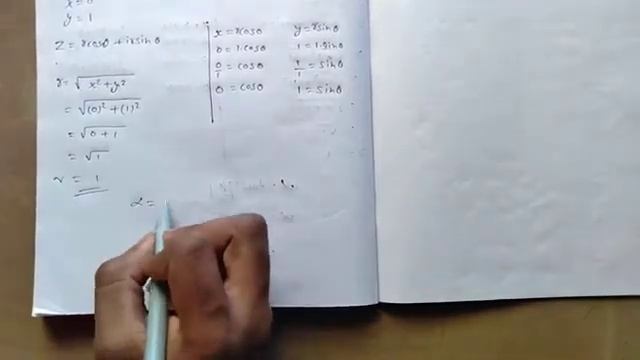 x = 0
y = 1
z = rcosθ + irsinθ
r = √x² + y²
= √(0)² + (1)²
= √0 + 1
= √1
r = 1
x = rcosθ
0 = 1.cosθ
0/1 = cosθ
0 = cosθ
y = rsinθ
1 = 1.sinθ
1/1 = sinθ
1 = sinθ
α =